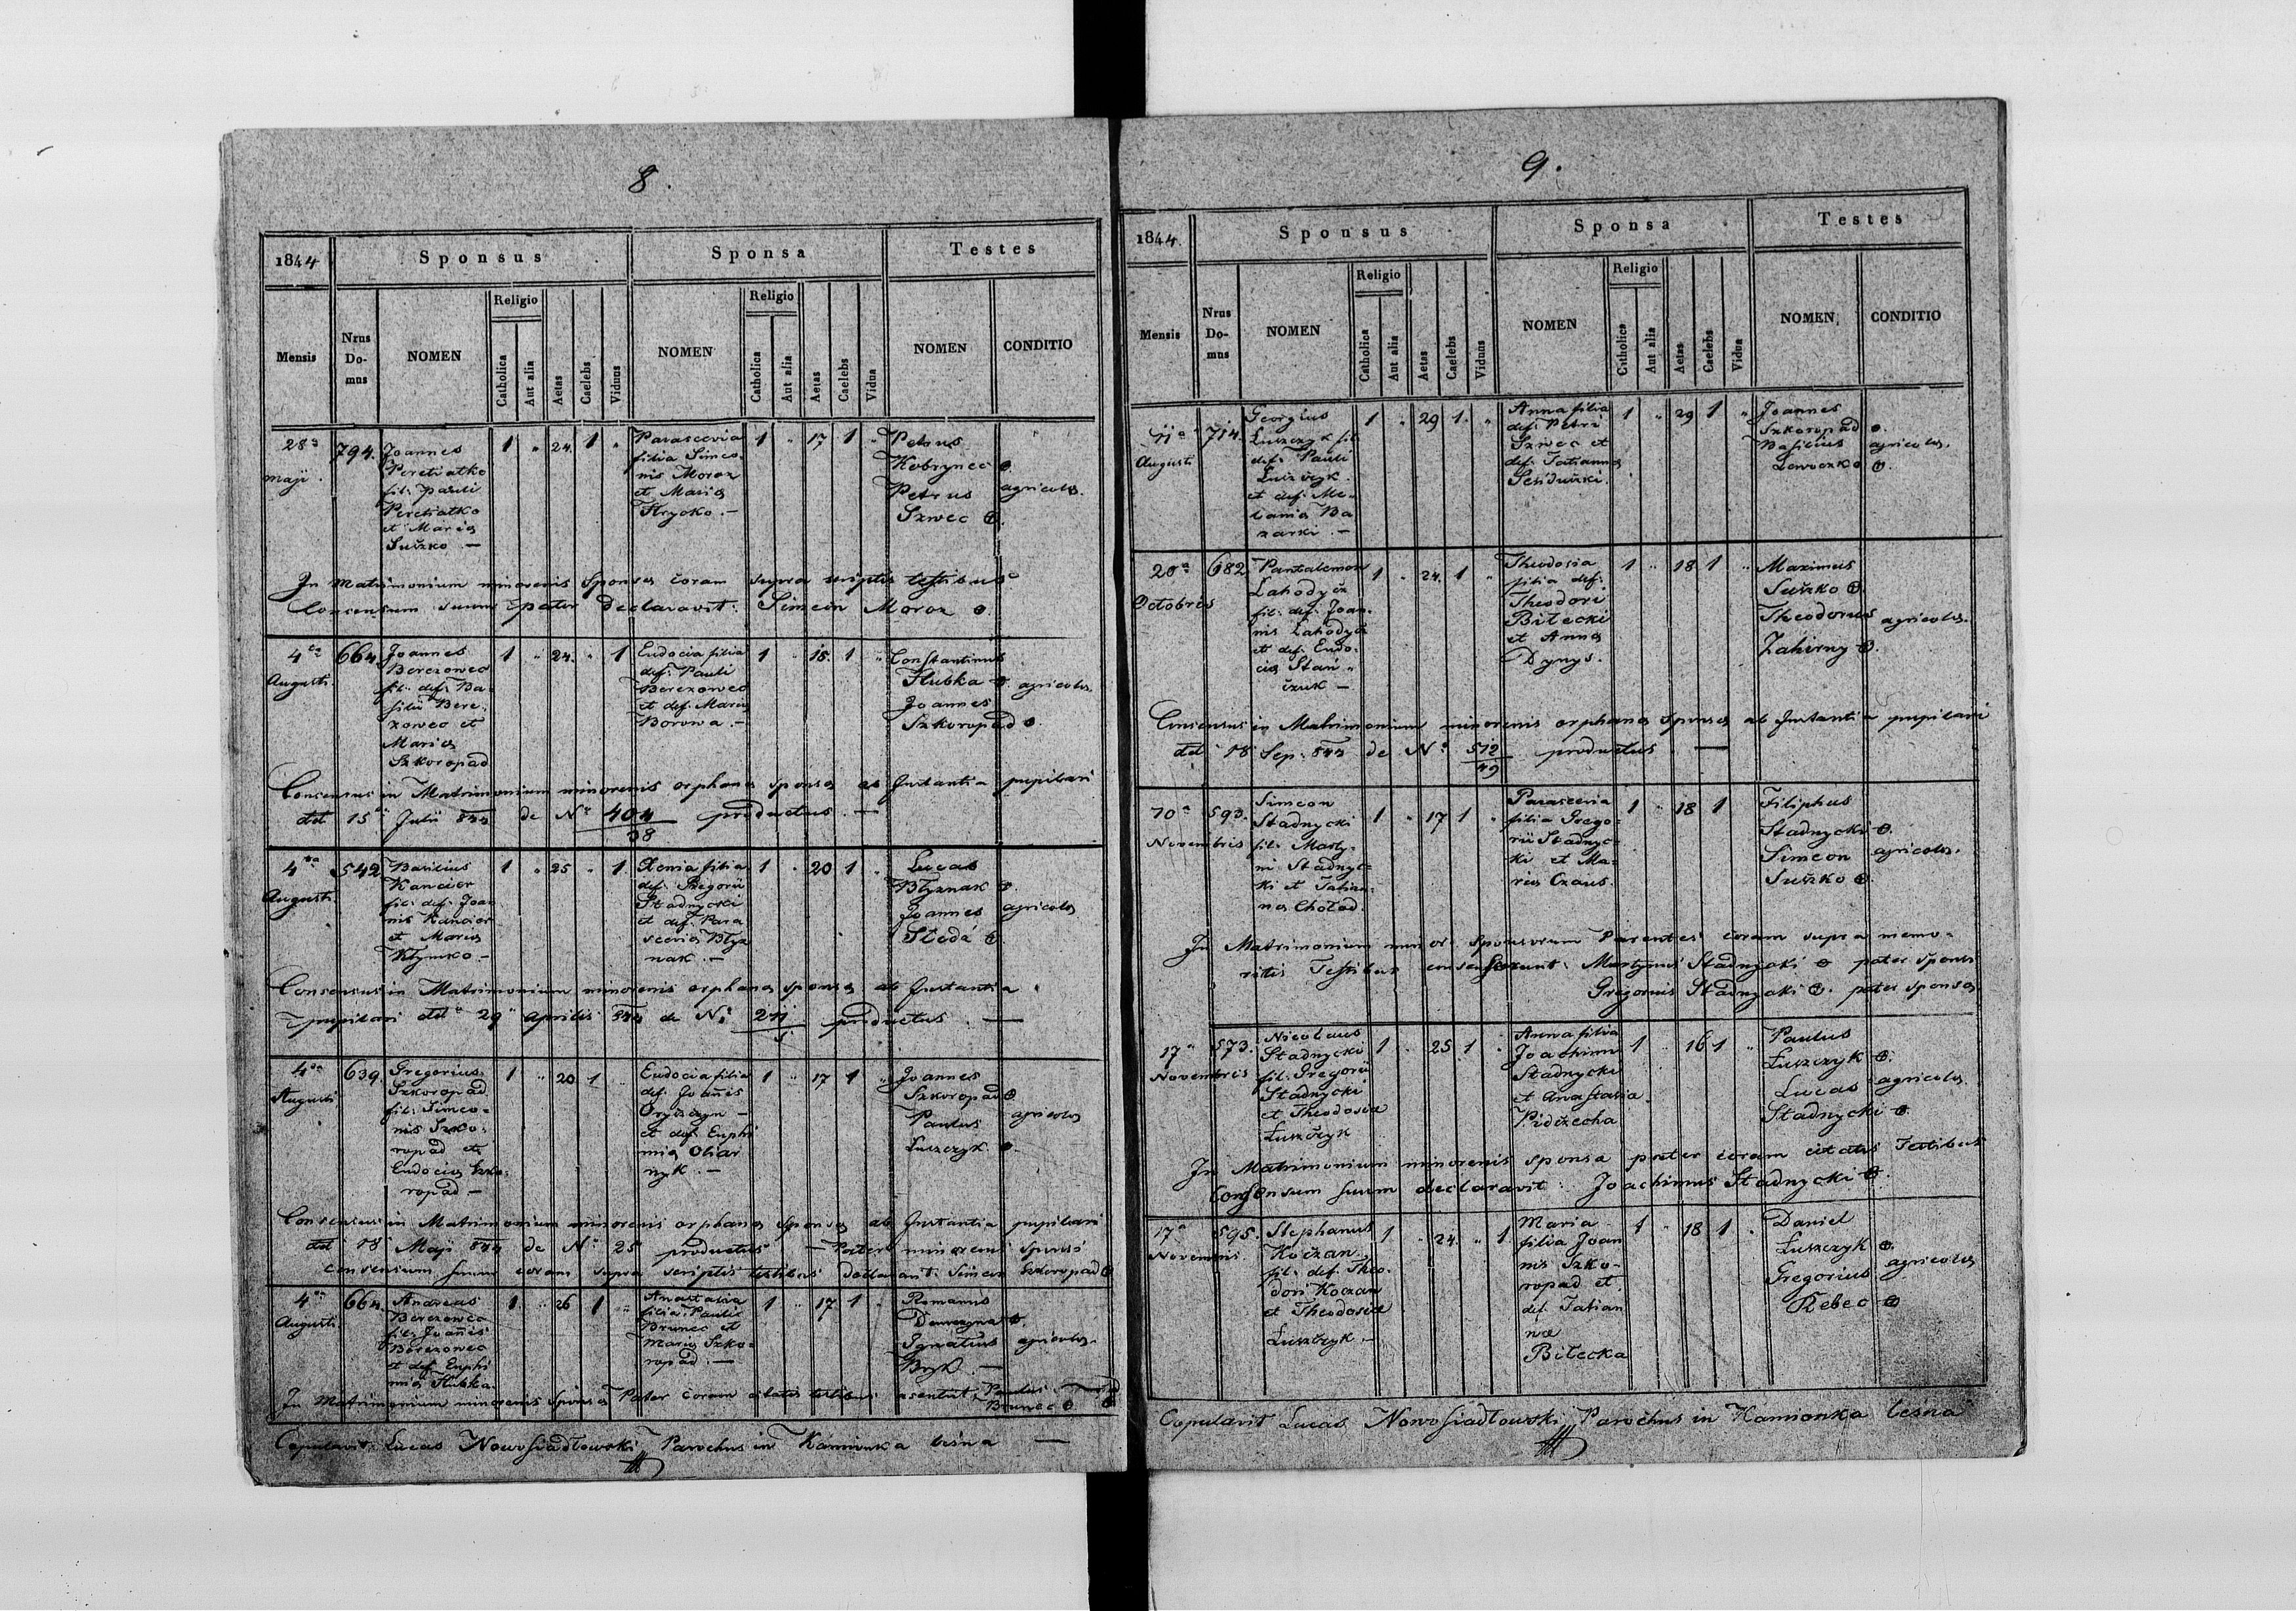 8.
1844
Sponsus
Sponsa
Testes
Mensis
Nrus Do-mus
NOMEN
Religio
Catholica
Aut alia
Aetas
Caelebs
Viduus
NOMEN
Religio
Catholica
Aut alia
Aetas
Caelebs
Vidua
NOMEN
CONDITIO
28a Maji.
794.
Joannes
Peretiatko
fil. Pauli
Peretiatko
et Maria
Suszko —
1 " 24. 1 "
Parascevia
filia Simeo-
nis Moroz
et Maria
Hrycko. —
1 " 17 1 "
Petrus
Kobrynec
Petrus
Szwec
agricolæ.
In Matrimonium minorenis Sponsæ coram supra scriptis testibus
Consensum suum pater declaravit: Simeon Moroz
4ta Augusti.
664.
Joannes
Berezowec
fil. def. Ba-
silii Bere-
zowec et
Maria
Szkoropad
1 " 24. " 1
Eudocia filia
def. Pauli
Berezowec
et def. Maria
Borowa. —
1 " 18. 1 "
Constantinus
Hubka
Joannes
Szkoropad
agricolæ.
Consensus in Matrimonium minorenis orphanæ sponsæ ab Instantia pupilari
dd 15a Julii 844 de Nr 404/38 productus. —
4ta Augusti.
542
Basilius
Kancier
fil. def. Joa-
nis Kancier
et Maria
Klymko. —
1 " 25 " 1.
Xenia filia
def. Gregorii
Stadnycki
et def. Para
scevia Błyz
nak. —
1 " 20 1 "
Lucas
Błyznak
Joannes
agricolæ
Consensus in Matrimonium minorenis orphanæ sponsæ ab Instantia
pupilari dd 29a Aprilis 844 de Nr 211/5 productus. —
4ta Augusti
639.
Gregorius
Szkoropad
fil. Simeo-
nis Szko-
ropad et
Eudocia Szko-
ropad —
1 " 20 1 "
Eudocia filia
def. Joannis
et def. Euphi
mia Oliar
nyk. —
1 " 17 1 "
Joannes
Szkoropad
Paulus
Łuszczyk
agricolæ
Consensus in Matrimonium minorenis orphanæ Sponsæ ab Instantia pupilari
dd 18 Maji 844 de Nr 25 productus — Pater minorem sponsi
consensum suum coram supra scriptis testibus Simeon Szkoropad
4ta Augusti.
664.
Andreas
Berezowec
fil. Joannis
Berezowec
et def. Euphi
mia Hubka.
1 " 26 1 "
Anastasia
filia Pauli
Brunec et
Maria Szko-
ropad. —
1 " 17 1 "
Romanus
Ignatius
Bryk —
agricolæ.
In Matrimonium minorenis Sponsæ Pater coram citatis testibus Paulus
Brunec
Copulavit: Lucas Nowosiadłowski Parochus in Kamionka leśna —
9.
1844.
Sponsus
Sponsa
Testes
Mensis
Nrus Do-mus
NOMEN
Religio
Catholica
Aut alia
Aetas
Caelebs
Viduus
NOMEN
Religio
Catholica
Aut alia
Aetas
Caelebs
Vidua
NOMEN
CONDITIO
11a Augusti
714.
Georgius
Łuszczyk fil.
def. Pauli
Łuszczyk
et def. Me-
lania Ba
zarki. —
1 " 29 1. "
Anna filia
def. Petri
Szwec et
def. Tatianna
1 " 29 1 "
Joannes
Szkoropad
Basilius
Lewoczko
agricolæ.
20a Octobris
682
Pantalemon
Łahodycz
fil. def. Joan-
nis Łahodycz
et def. Eudo-
cia Stań-
czuk —
1 " 24. 1 "
Theodosia
filia def.
Theodori
Bilecki
et Anna
Dynys.
1 " 18 1 "
Maximus
Suszko
Theodorus
Zahirny
agricolæ.
Consensus in Matrimonium minorenis orphanæ Sponsæ ab Instantia pupilari
dd 18 Sep. 844 de Nr 512/49 productus —
10a Novembris
593.
Simeon
Stadnycki
fil. Marty-
ni Stadnyc-
ki et Tatian-
na Chołod.
1 " 17 1 "
Parascevia
filia Grego-
rii Stadnyc-
ki et Ma-
ria Czaus.
1 " 18 1
Filiphus
Stadnycki
Simeon
Suszko
agricolæ.
In Matrimonium minor. Sponsorum Parentes coram supra memo-
ratis Testibus consenserunt: Martynus Stadnycki pater sponsi
Gregorius Stadnycki pater sponsæ
17a Novembris
573.
Nicolaus
Stadnycki
fil. Gregorii
Stadnycki
et Theodosia
Łuszczyk
1 " 25 1 "
Anna filia
Joachimi
Stadnycki
et Anastasia
Pidzecha
1 " 16 1 "
Paulus
Łuszczyk
Lucas
Stadnycki
agricolæ.
In Matrimonium minorenis sponsa pater coram citatis Testibus
Consensum suum declaravit: Joachimus Stadnycki
17a Novembris.
595.
Stephanus
Koczan
fil. def. Theo-
dori Koczan
et Theodosia
Łuszczyk —
1 " 24. " 1
Maria
filia Joan
nis Szko-
ropad et
def. Tatian
næ
Bilecka
1 " 18 1 "
Daniel
Łuszczyk
Gregorius
Rebec
agricolæ
Copulavit Lucas Nowosiadłowski Parochus in Kamionka leśna